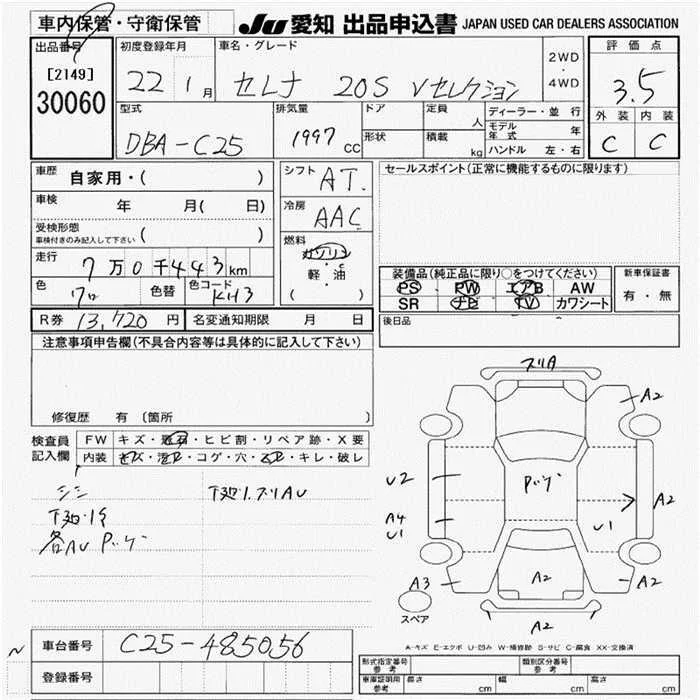 車内保管・守衛保管
JU 愛知 出品申込書 JAPAN USED CAR DEALERS ASSOCIATION
出品番号
[2149]
30060
初度登録年月
22 1月
車名・グレード
セレナ 20S Vセレクション
2WD
・
4WD
評価点
3.5
外装 内装
C C
型式
DBA-C25
排気量
1997 CC
ドア
形状
定員 人
積載 kg
ディーラー・並行
モデル年式 年
ハンドル 左・右
車歴 自家用・( )
車検 年 月( 日)
受検形態
車検付きのみ記入して下さい ( )
走行 7万0千443km
色 クロ 色替 色コード KH3
シフト AT.
冷房 AAC
燃料
ガソリン
・
軽・油
( )
セールスポイント(正常に機能するものに限ります)
装備品(純正品に限り○をつけてください)
PS PW エアB AW
SR ナビ TV カワシート
新車保証書
有・無
後日品
R券 13,720円 名変通知期限 月 日
注意事項申告欄(不具合内容等は具体的に記入して下さい)
修復歴 有 〔箇所 〕
検査員記入欄
FW キズ・飛石・ヒビ割・リペア跡・X要
内装 キズ・汚レ・コゲ・穴・スレ・キレ・破レ
シミ
下廻リ
各AU
下廻リスリAU
スリA
A2
U2
A4
U1
A2
U1
A3
A2
A2
A2
スペア
A-キズ E-エクボ U-凹み W-補修跡 S-サビ C-腐食 XX-交換済
車台番号 C25-485056
登録番号
形式指定番号 参考
類別区分番号 参考
車庫証明用 参考 長さ cm 幅 cm 高さ cm